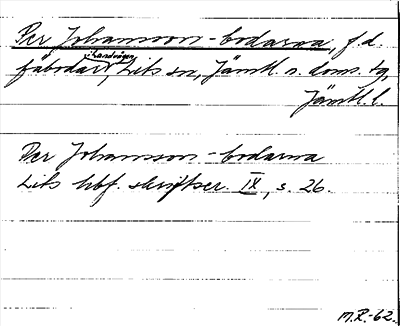 Per Johansson-bodarna, f.d.
fäbodar, i Landvågen, Lits sn, Jämtl. n. doms. tg,
Jämtl. l.
Per Johansson-bodarna
Lits hbf. skriftser. IX, s. 26.
M.R.-62.